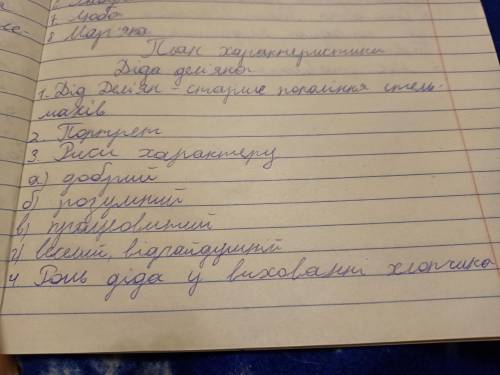 7. Люба
8. Мар'яна
План характеристики
Діда Дем'яна
1. Дід Дем'ян - старше покоління стель-
махів
2. Портрет
3. Риси характеру
а) добрий
б) розумний
в) працьовитий
г) веселий, відчайдушний
4 Роль діда у вихованні хлопчика